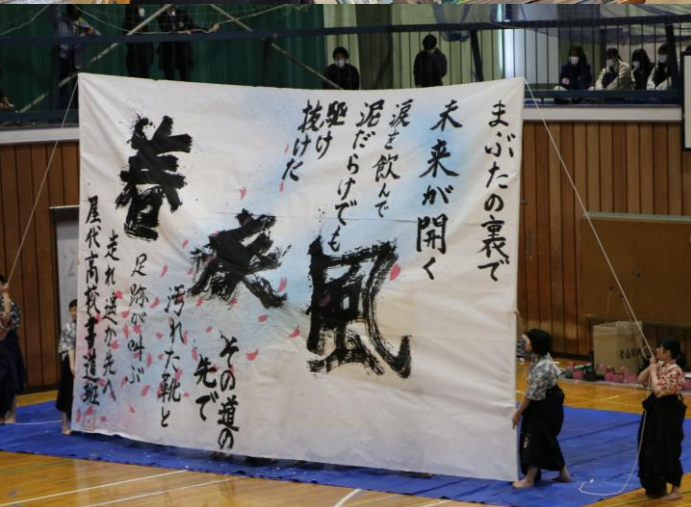 まぶたの裏で
未来が開く
涙を飲んで
泥だらけでも
駆け
抜けた
風
その道の
先で
汚れた靴と
足跡が叫ぶ
走れ遥か先へ
春
屋代高校書道班